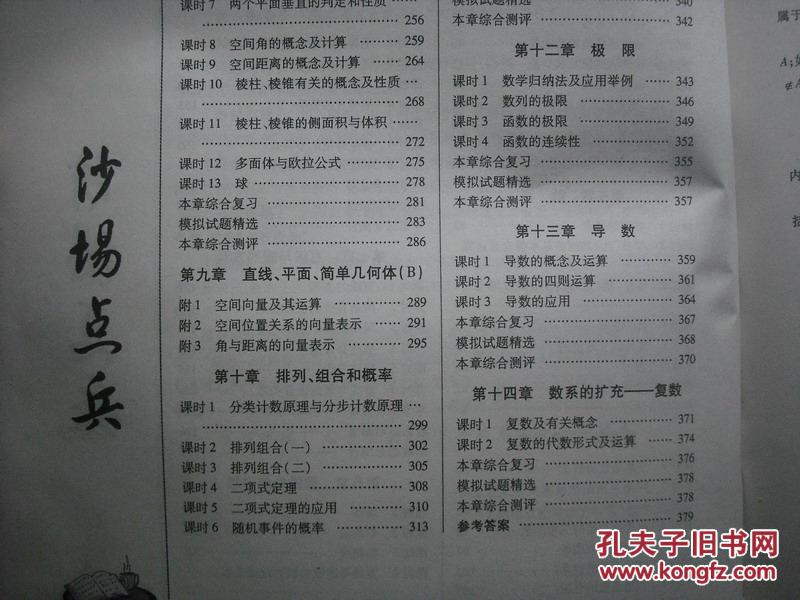 沙场点兵
课时7 两个平面垂直的判定和性质 ……
……………………………… 256
课时8 空间角的概念及计算 ……… 259
课时9 空间距离的概念及计算 …… 264
课时10 棱柱、棱锥有关的概念及性质 …
……………………………… 268
课时11 棱柱、棱锥的侧面积与体积 ……
……………………………… 272
课时12 多面体与欧拉公式 ………… 275
课时13 球 …………………… 278
本章综合复习 ………………… 281
模拟试题精选 ………………… 283
本章综合测评 ………………… 286
第九章 直线、平面、简单几何体(B)
附1 空间向量及其运算 ………… 289
附2 空间位置关系的向量表示 …… 291
附3 角与距离的向量表示 ……… 295
第十章 排列、组合和概率
课时1 分类计数原理与分步计数原理 …
……………………………… 299
课时2 排列组合(一) …………… 302
课时3 排列组合(二) …………… 305
课时4 二项式定理 …………… 308
课时5 二项式定理的应用 ……… 310
课时6 随机事件的概率 ………… 313
模拟试题精选 ………………… 340
本章综合测评 ………………… 342
第十二章 极 限
课时1 数学归纳法及应用举例 …… 343
课时2 数列的极限 …………… 346
课时3 函数的极限 …………… 349
课时4 函数的连续性 ………… 352
本章综合复习 ………………… 355
模拟试题精选 ………………… 357
本章综合测评 ………………… 357
第十三章 导 数
课时1 导数的概念及运算 ……… 359
课时2 导数的四则运算 ………… 361
课时3 导数的应用 …………… 364
本章综合复习 ………………… 367
模拟试题精选 ………………… 368
本章综合测评 ………………… 370
第十四章 数系的扩充——复数
课时1 复数及有关概念 ………… 371
课时2 复数的代数形式及运算 …… 374
本章综合复习 ………………… 376
模拟试题精选 ………………… 378
本章综合测评 ………………… 378
参考答案 …………………… 379
属于
A;如
∉A
内
括
孔夫子旧书网
www.kongfz.com